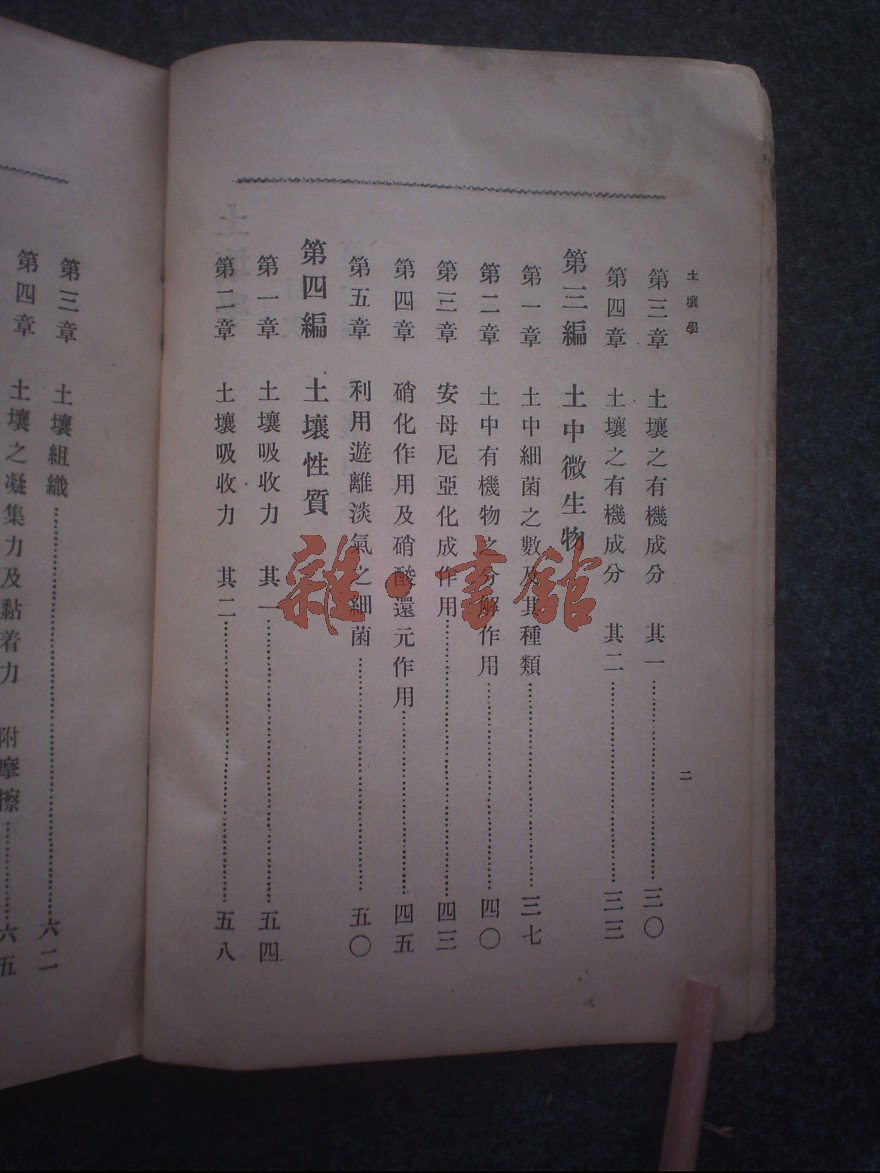 土壤學
二
第三章 土壤之有機成分 其一……三〇
第四章 土壤之有機成分 其二……三三
第三編 土中微生物
第一章 土中細菌之數及其種類……三七
第二章 土中有機物之分解作用……四〇
第三章 安母尼亞化成作用……四三
第四章 硝化作用及硝酸還元作用……四五
第五章 利用遊離淡氣之細菌……五〇
第四編 土壤性質
第一章 土壤吸收力 其一……五四
第二章 土壤吸收力 其二……五八
第三章 土壤組織……六二
第四章 土壤之凝集力及黏着力 附摩擦……六五
雜·書館